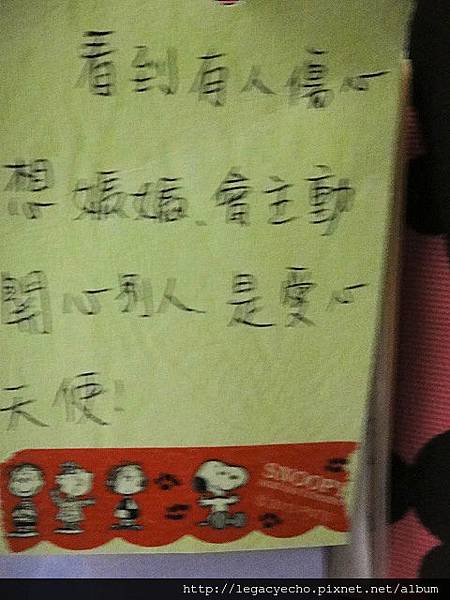 看到有人傷心
想媽媽、會主動
關心別人 是愛心
天使!
SNOOPY
http://legacyecho.pixnet.net/album